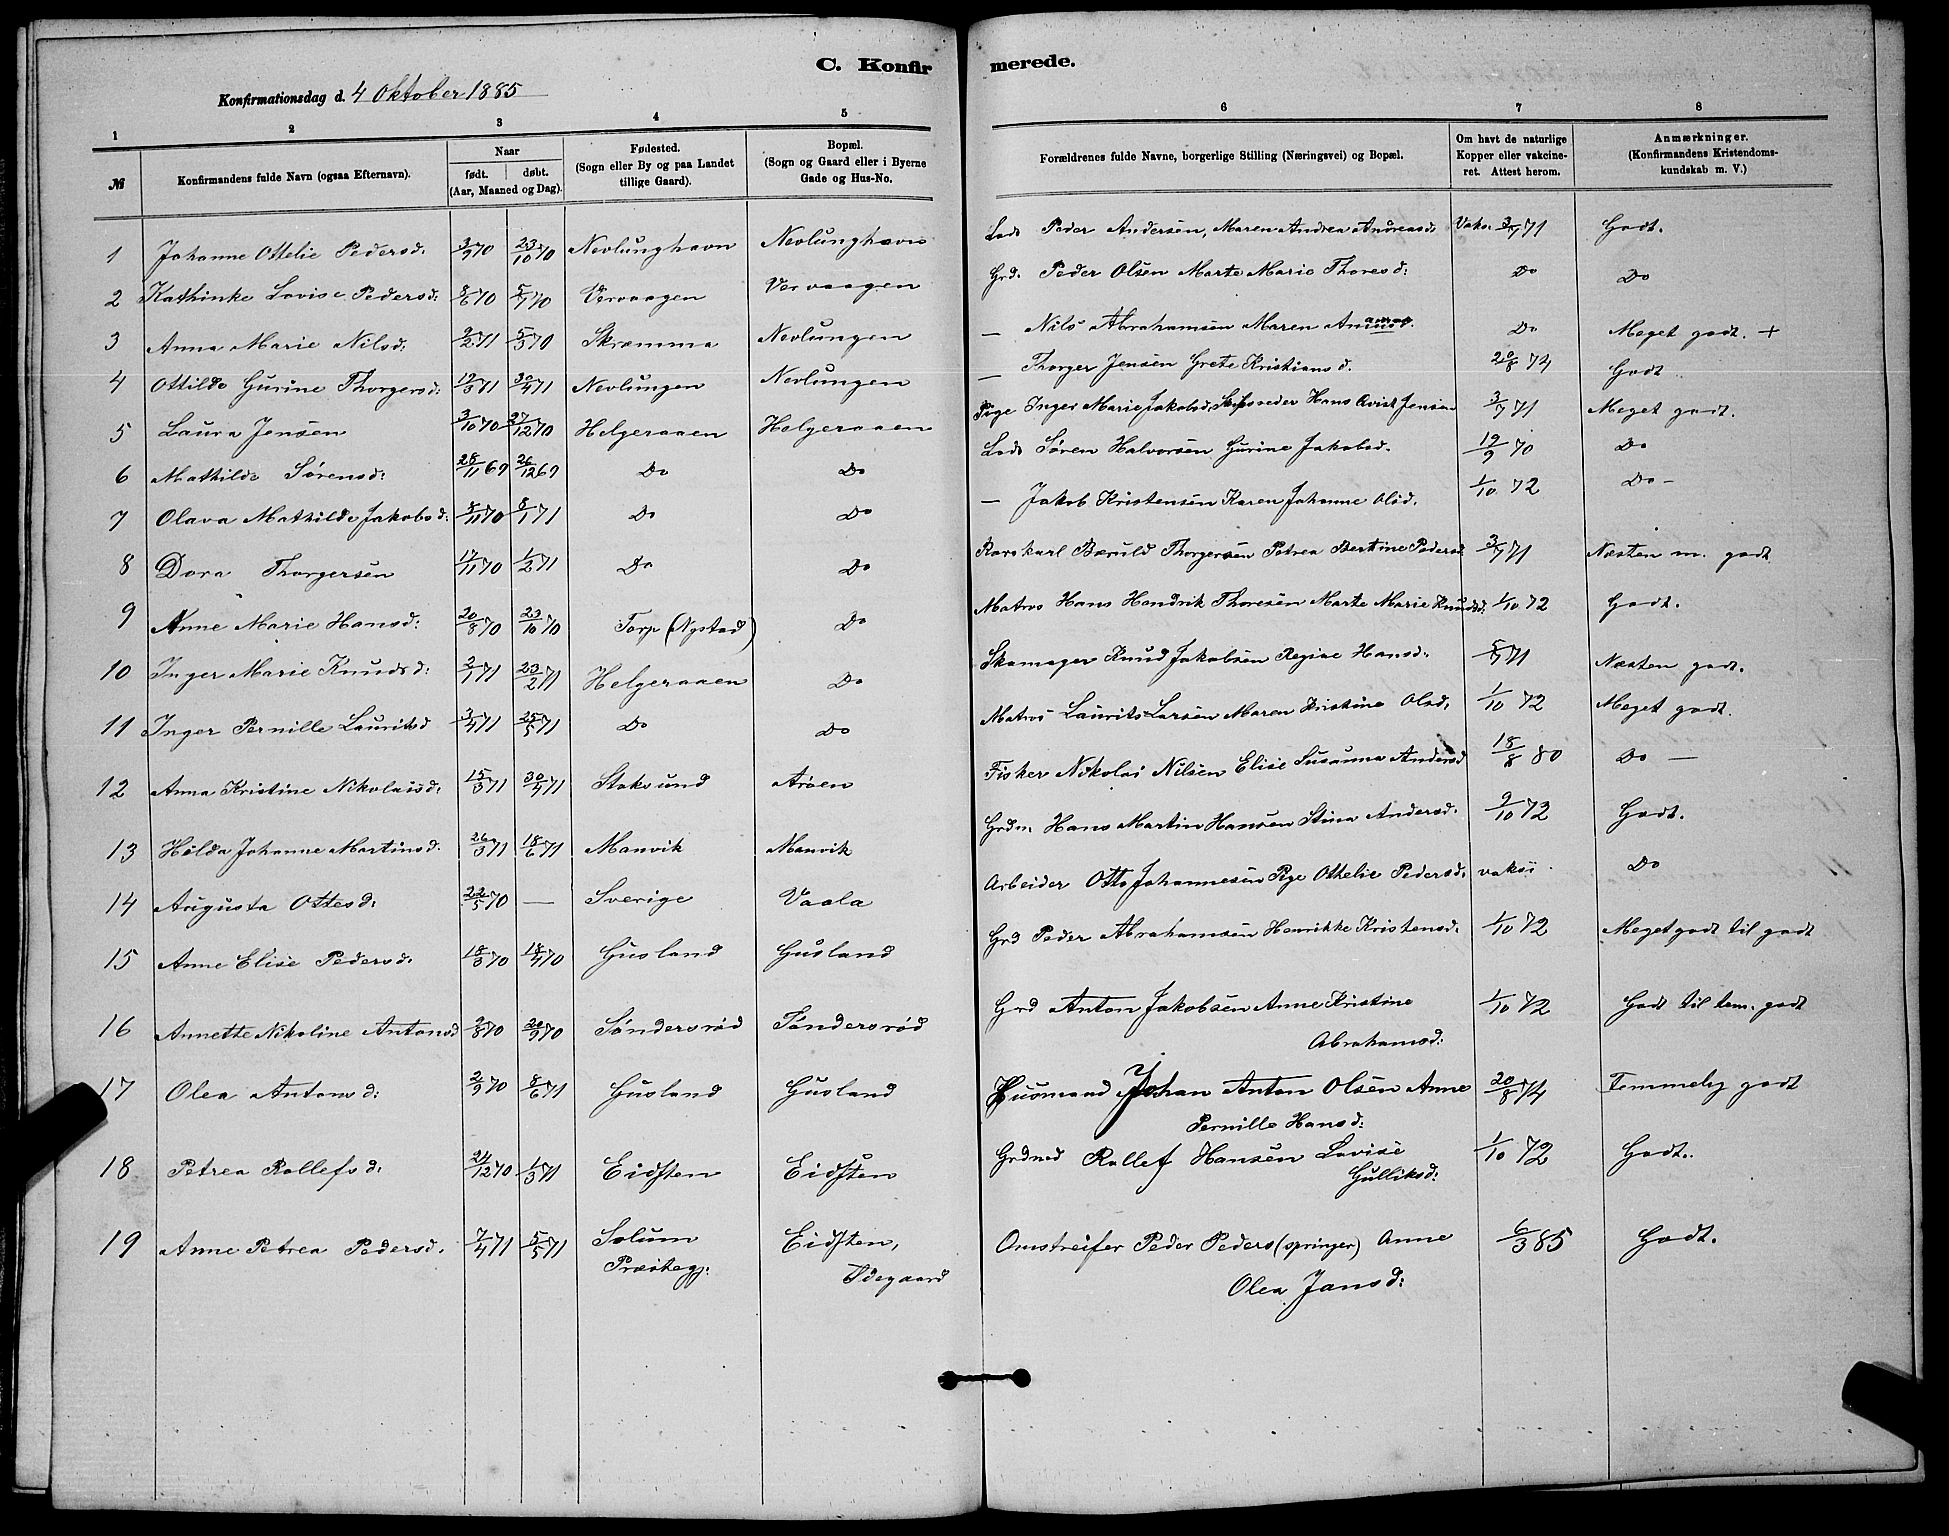 C. Konfir merede.
Konfirmationsdag d. 4 Oktober 1885
1 2 3 4 5 6 7 8
№ Konfirmandens fulde Navn (ogsaa Efternavn). Naar født. døbt. (Aar, Maaned og Dag). Fødested. (Sogn eller By og paa Landet tillige Gaard). Bopæl. (Sogn og Gaard eller i Byerne Gade og Hus-No. Forældrenes fulde Navne, borgerlige Stilling (Næringsvei) og Bopæl. Om havt de naturlige Kopper eller vakcineret. Attest herom. Anmærkninger. (Konfirmandens Kristendomskundskab m. V.)
1 Johanne Ottelie Pedersd: 3/9 70 23/10 70 Nevlunghavn Nevlunghavn Lods Peder Andersen, Maren Andrea Andreasd: Vakc. 3/7 71 Godt.
2 Kathinke Lovise Pedersd: 8/6 70 5/7 70 Vervaagen Vervaagen Grd. Peder Olsen Marte Marie Thoresd: Do Do
3 Anna Marie Nilsd: 2/2 71 5/3 70 Skræmma Nevlungen — Nils Abrahamsen Maren Do Meget godt. +
4 Ottilde Gurine Thorgersd: 19/3 71 30/4 71 Nevlungen Nevlungen — Thorger Jensen Grete Kristiansd. 20/8 74 Godt
5 Laura Jensen 3/10 70 27/12 70 Helgeraaen Helgeraaen Pige Inger Marie Jakobsd, Skibsreder Hans Qvist Jensen 3/7 71 Meget godt.
6 Mathilde Sørensd: 28/11 69 26/12 69 Do Do Lods Søren Halvorsen Gurine Jakobsd. 19/9 70 Do
7 Olava Mathilde Jakobsd: 8/11 70 8/1 71 Do Do — Jakob Kristensen Karen Johanne Olsd. 1/10 72 Do —
8 Dora Thorgersen 17/11 70 1/2 71 Do Do Rorskarl Bæruld Thorgersen Petrea Bertine Pedersd. 3/7 71 Næsten m. godt
9 Anne Marie Hansd: 20/8 70 23/10 70 Torp (Nystad) Do Matros Hans Hendrik Thoresen Marte Marie Knudsd. 1/10 72 Godt.
10 Inger Marie Knudsd: 2/1 71 23/2 71 Helgeraaen Do Skomager Knud Jakobsen Regine Hansd: 5/7 71 Næsten godt.
11 Inger Pernille Lauritsd 3/4 71 25/5 71 Do Do Matros Laurits Larsen Maren Kristine Olsd, 1/10 72 Meget godt.
12 Anna Kristine Nikolaisd: 15/3 71 30/4 71 Stoksund Arøen Fisker Nikolai Nilsen Elise Susanna Andersd 18/8 80 Do —
13 Hilda Johanne Martinsd. 26/3 71 18/6 71 Manvik Manvik Grdm. Hans Martin Hansen Stina Andersd. 9/10 72 Godt.
14 Augusta Ottesd: 22/5 70 — Sverige Vaola Arbeider Otto Johannesen Pige Othelie Pedersd. Do
15 Anne Elise Pedersd. 18/3 70 18/4 70 Gusland Gusland Grd Peder Abrahamsen Henrikke Kristensd. 1/10 72 Meget godt til godt
16 Annette Nikoline Antonsd 2/8 70 20/9 70 Søndersrød Søndersrød Grd Anton Jakobsen Anne Kristine 1/10 72 Godt til tem. godt
Abrahamsd:
17 Olea Antonsd: 2/9 70 8/6 71 Gusland Gusland Husmand Johan Anton Olsen Anne 20/8 74 Temmelig godt
Pernille Hansd:
18 Petrea Rollefsd: 24/12 70. 1/3 71 Eidsten Eidsten Grdmd Rollef Hansen Lovise 1/10 72 Godt.
Gulliksd:
19 Anne Petrea Pedersd. 7/4 71 5/5 71 Solum Eidsten, Omstreifer Peder Peders (springer) Anne 6/3 85 Godt.
Præstegj: Ødegaard Olea Jansd: